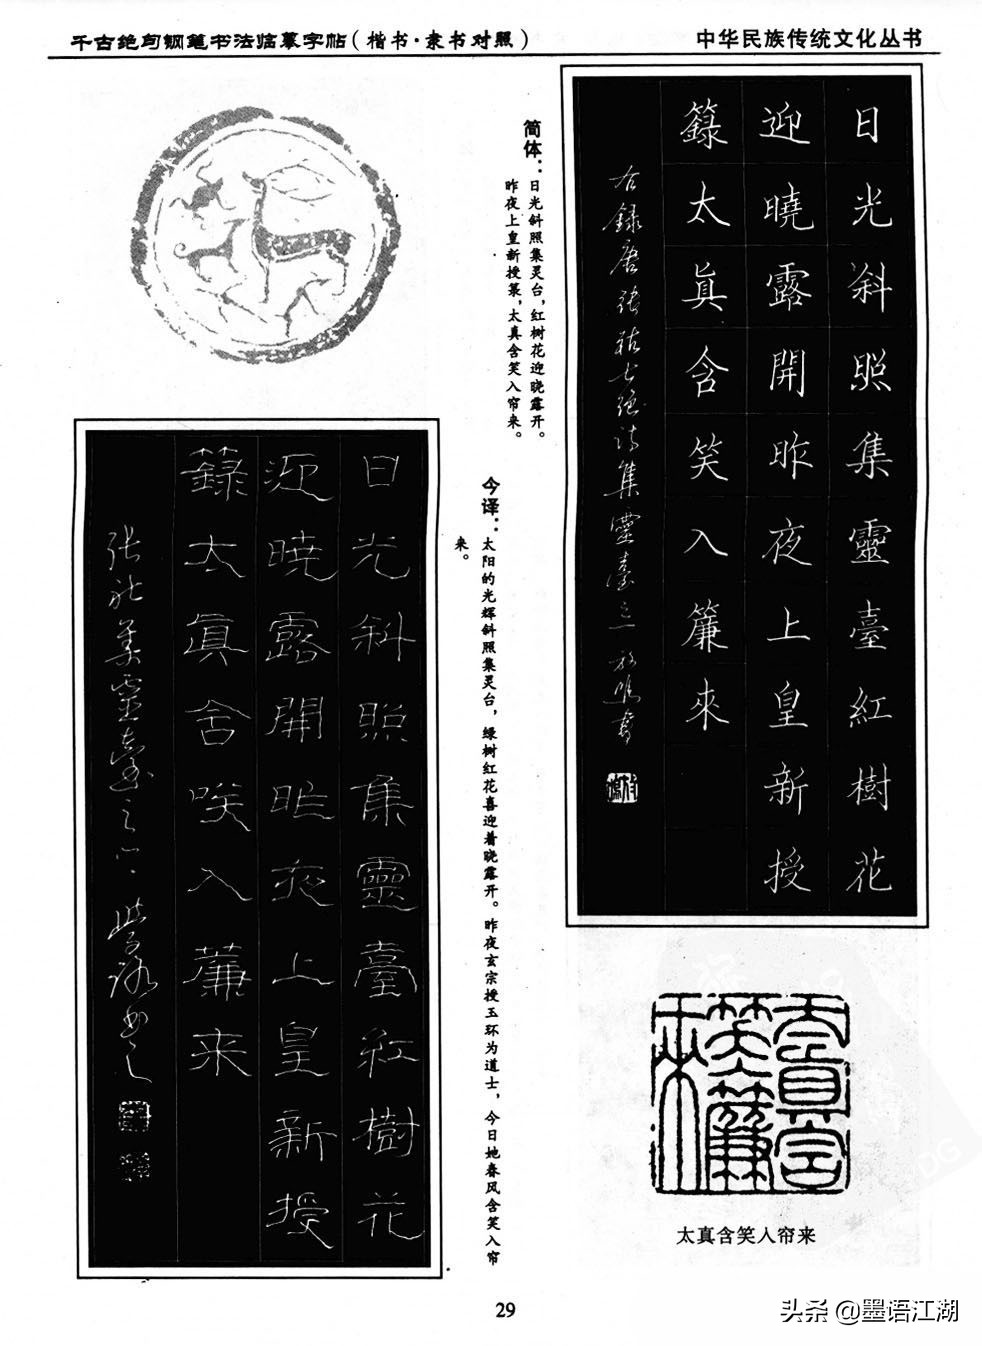 千古绝句钢笔书法临摹字帖(楷书·隶书对照)
中华民族传统文化丛书
日光斜照集靈臺紅樹花
迎曉露開昨夜上皇新授
籙太眞含笑入簾來
右録唐張祜七絶詩集靈臺之一
简体：日光斜照集灵台，红树花迎晓露开。
昨夜上皇新授箓，太真含笑入帘来。
今译：太阳的光辉斜照集灵台，绿树红花喜迎着晓露开。昨夜玄宗授玉环为道士，今日她春风含笑入帘
来。
日光斜照集靈臺紅樹花
迎曉露開昨夜上皇新授
籙太眞含咲入簾来
太真含笑入簾来
太真含笑人帘来
29
头条 @墨语江湖